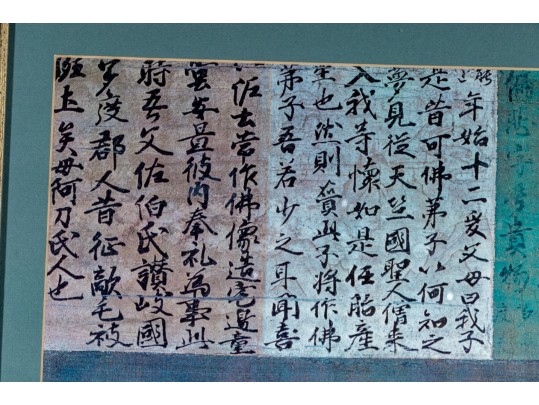 年始十二爰父母曰我子
是昔可佛弟子以何知之
夢見從天竺國聖人僧來
入我等懷如是任胎產
生也然則賷此子將作佛
弟子吾若少之耳聞喜
泥土常作佛像造宅邊童
堂安置彼內奉礼為事此
時吾父佐伯氏讃岐國
多度郡人昔征敵毛被
班土矣母阿刀氏人也